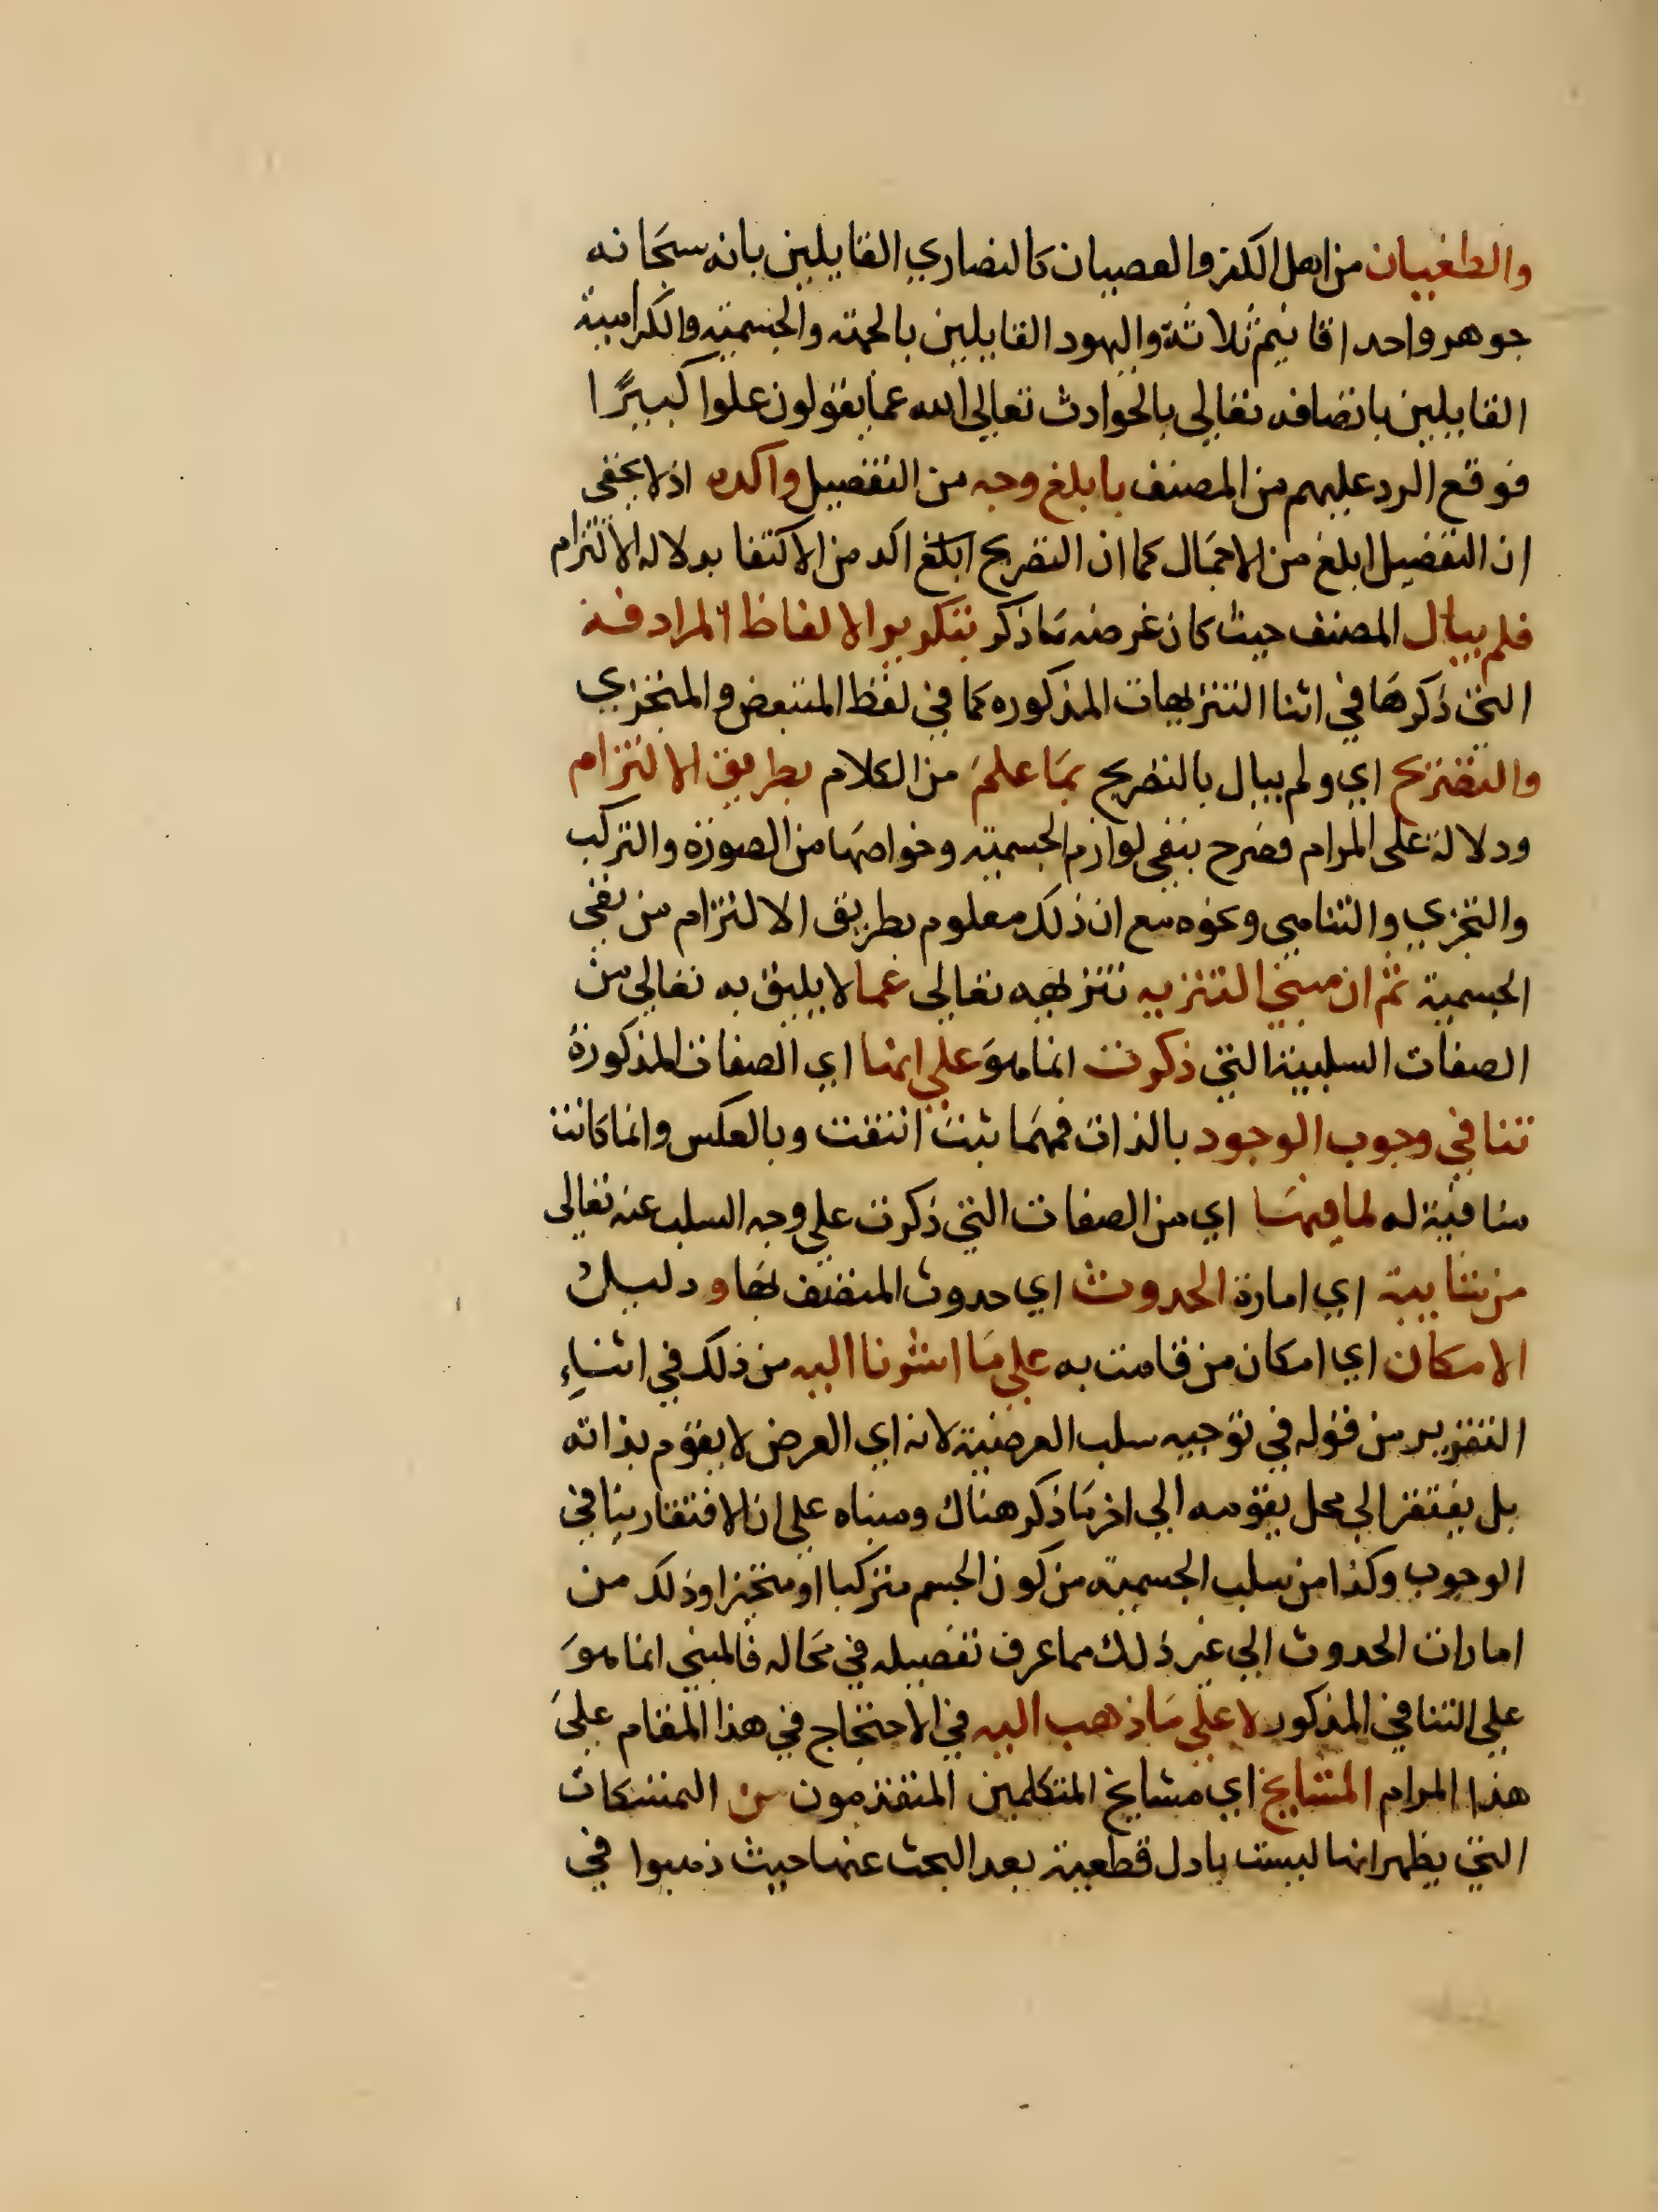 والطغيان من اهل الكفر والعصيان كالنصاري القايلين بانه سبحانه
جوهر واحد اقانيم ثلاثة واليهود القايلين بالجهته والجسميته والكرامية
القايلين باتصافه تعالي بالحوادث تعالي الله عما يقولون علوا كبيرًا
فوقع الرد عليهم من المصنف بابلغ وجه من التفصيل واكده اذ لا يخفي
ان التفصيل ابلغ من الاجمال كما ان التصريح ابلغ اكد من الاكتفا بدلاله الالتزام
فلم يبال المصنف حيث كان غرضه ما ذكر بتكرير الالفاظ المرادفة
التي ذكرها في اثنا التنزيهات المذكوره كما في لفظ المتبعض والمتجزي
والتصريح اي ولم يبال بالتصريح بما علم من الكلام بطريق الالتزام
ودلالة علي المرام فصرح بنفي لوازم الجسميته وخواصها من الصورة والتركب
والتجزي والتناهي ونحوه مع ان ذلك معلوم بطريق الالتزام من نفي
الجسمية ثم ان مبني التنزيه تنزيهه تعالي عما لا يليق به تعالي من
الصفات السلبية التي ذكرت انما هو علي انها اي الصفات المذكورة
تنافي وجوب الوجود بالذات فمهما ثبت انتفت وبالعكس وانما كانت
منافية له لما فيها اي من الصفات التي ذكرت علي وجه السلب عنه تعالي
من شايبة اي امارة الحدوث اي حدوث المتصف بها و دليل
الامكان اي امكان من قامت به علي ما اشرنا اليه من ذلك في اثناء
التقرير من قوله في توجيه سلب العرضية لانه اي العرض لا يقوم بذاته
بل يفتقر الي محل يقومه الي اخر ما ذكر هناك ومبناه علي ان الافتقار ينافي
الوجوب وكذا من سلب الجسميته من كون الجسم متركبا او متحيزا وذلك من
امارات الحدوث الي غير ذلك مما عرف تفصيله في محاله فالمبني انما هو
علي التنافي المذكور لا علي ما ذهب اليه في الاحتجاج في هذا المقام علي
هذا المرام المشايخ اي مشايخ المتكلمين المتقدمون من التمسكات
التي يظهر انها ليست بادل قطعية بعد البحث عنها حيث ذهبوا في